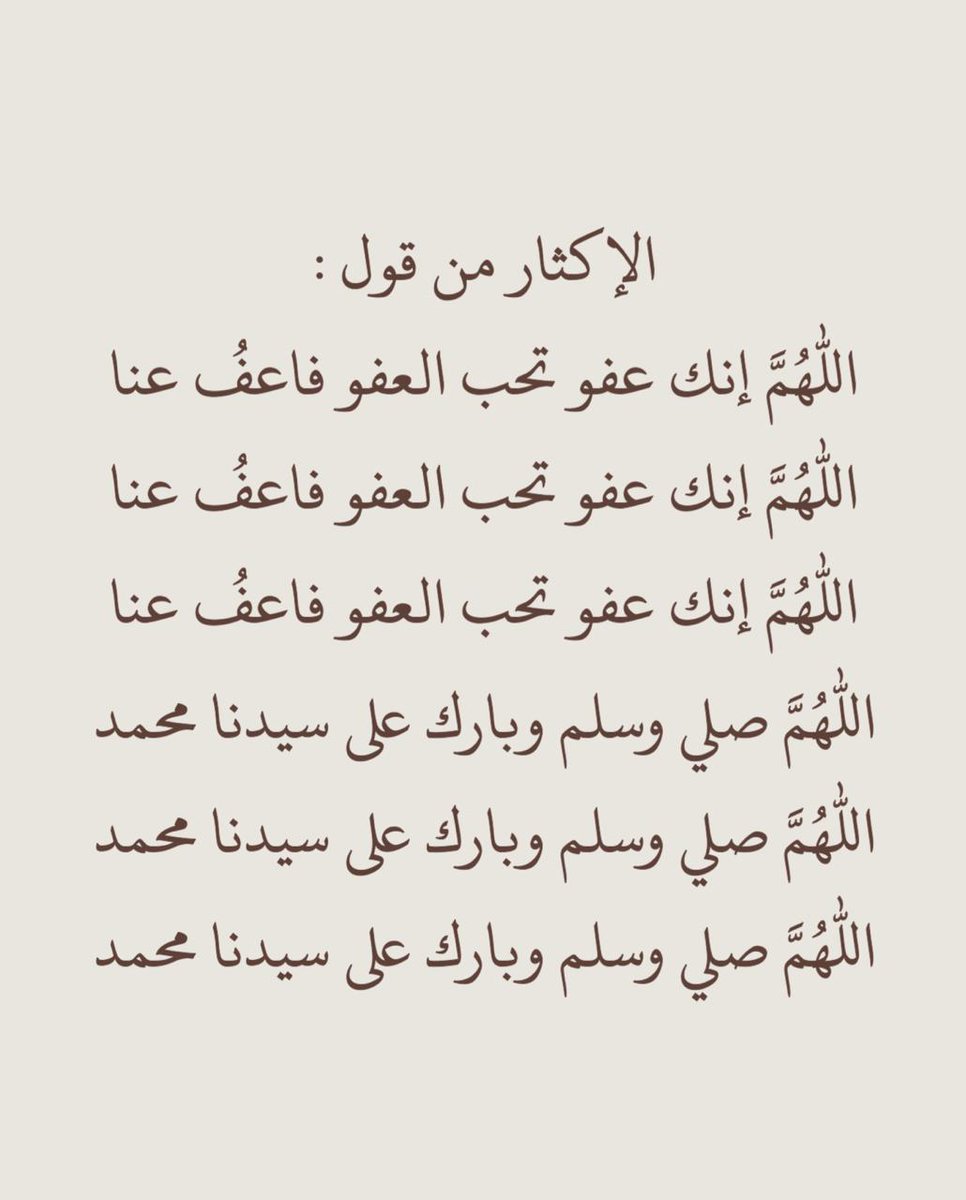 الإكثار من قول :
اللّٰهُمَّ إنك عفو تحب العفو فاعفُ عنا
اللّٰهُمَّ إنك عفو تحب العفو فاعفُ عنا
اللّٰهُمَّ إنك عفو تحب العفو فاعفُ عنا
اللّٰهُمَّ صلي وسلم وبارك على سيدنا محمد
اللّٰهُمَّ صلي وسلم وبارك على سيدنا محمد
اللّٰهُمَّ صلي وسلم وبارك على سيدنا محمد